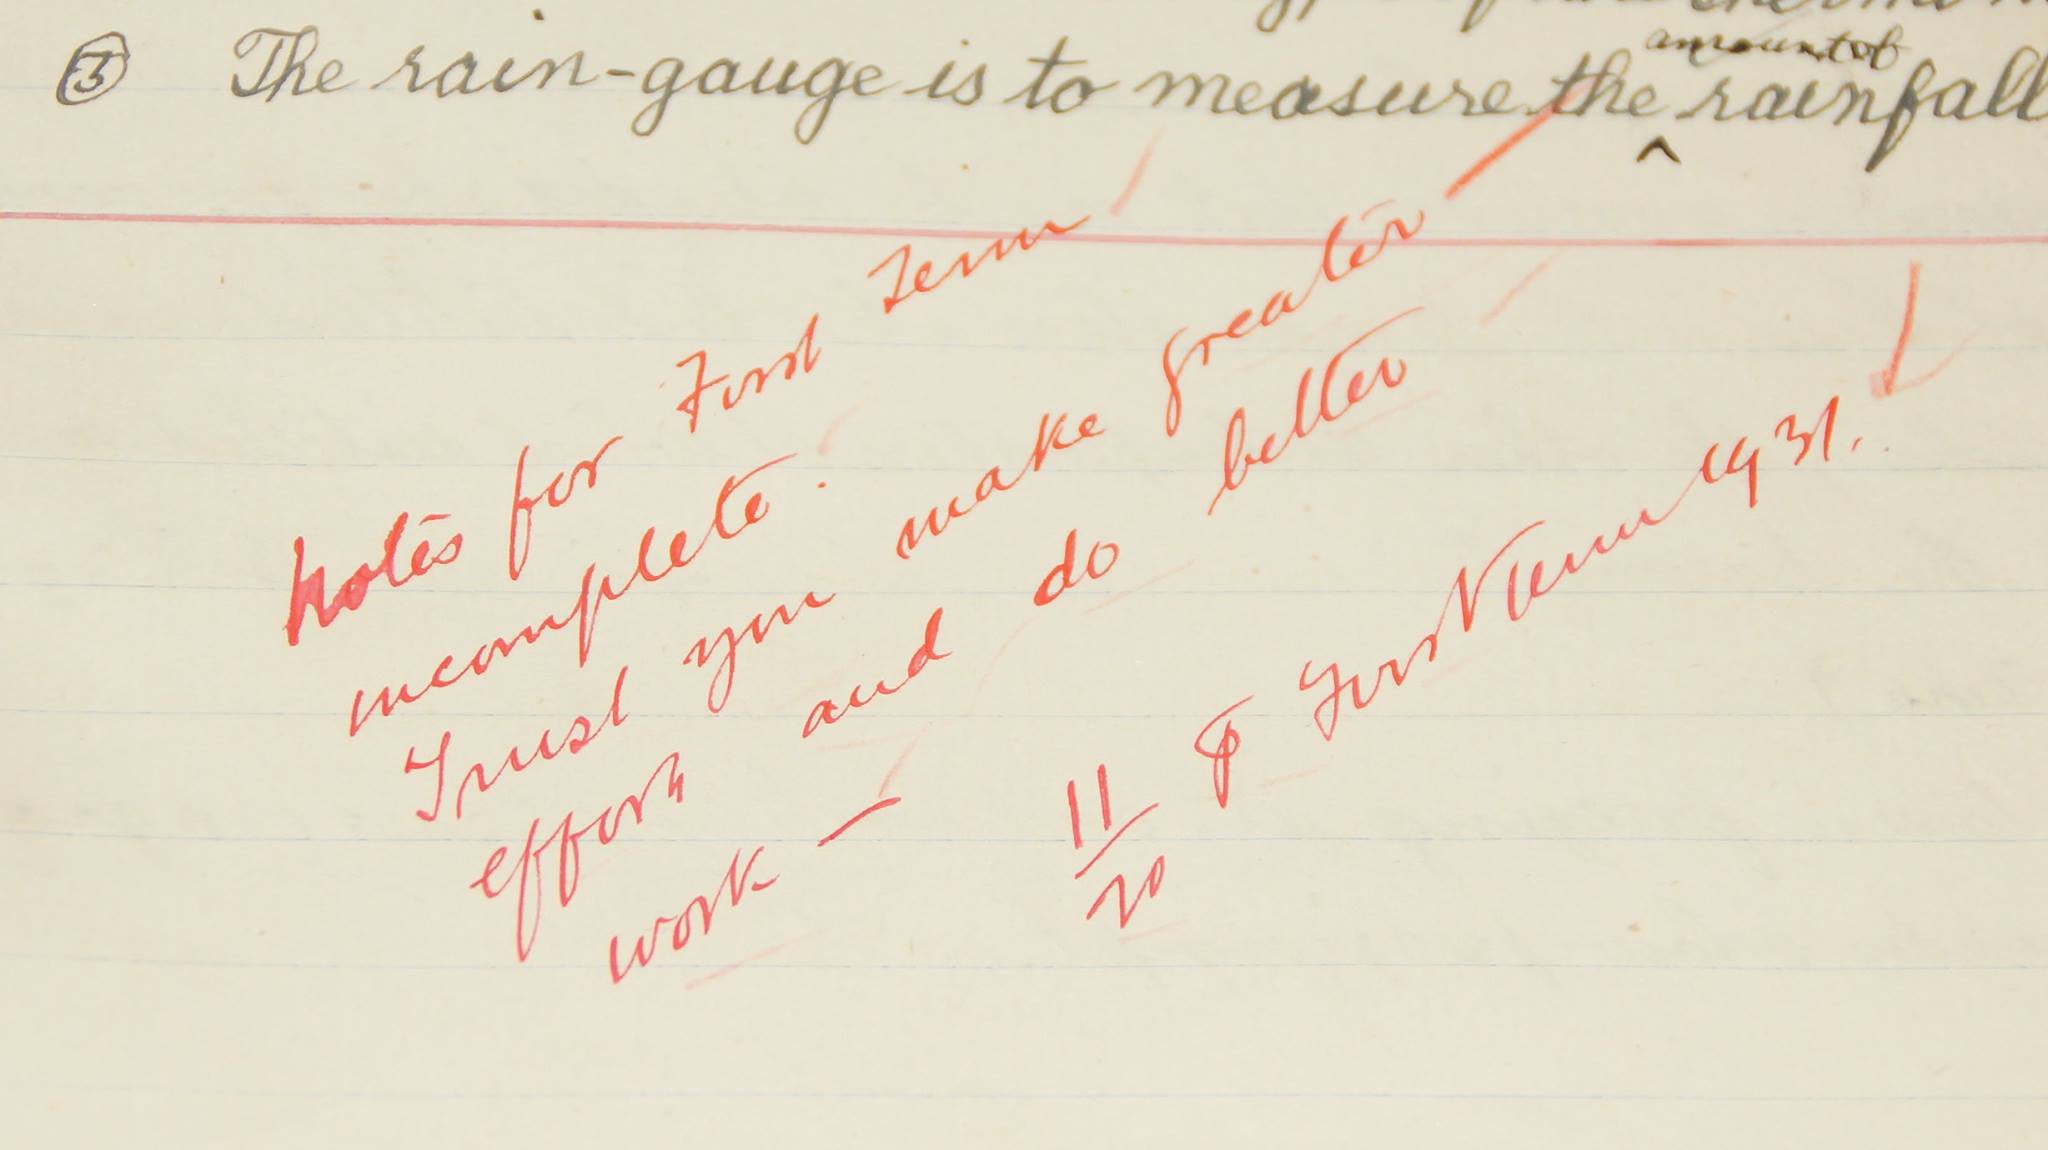 ③ The rain-gauge is to measure the amount of rainfall
Notes for First Term
incomplete.
Trust you make greater
effort and do better
work —
11/20 First Term 1931.